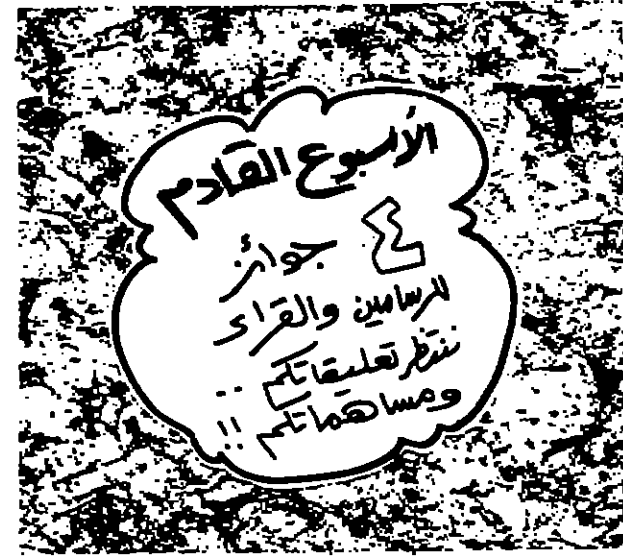 الأسبوع القادم
٤ جوائز
للرسامين والقراء
ننتظر تعليقاتكم ..
ومساهماتكم !!